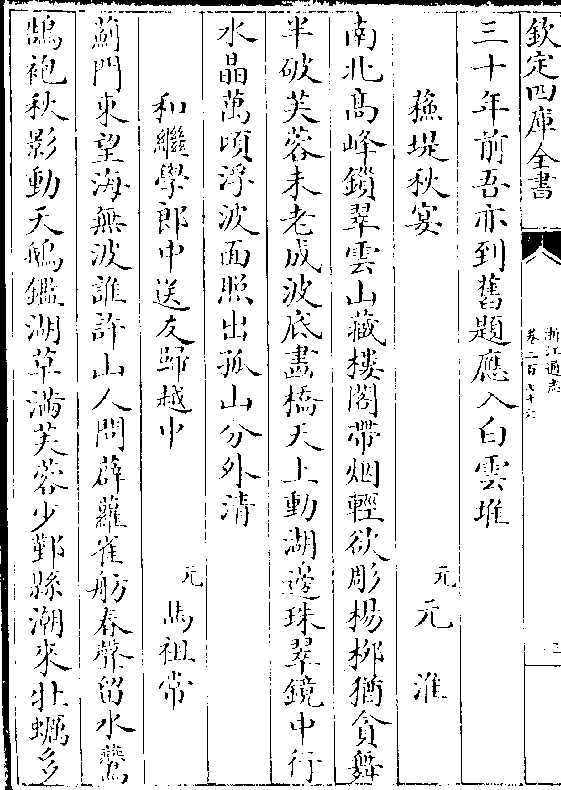 欽定四庫全書
浙江通志
卷二百七十六
三十年前吾亦到舊題應入白雲堆
蘓堤秋宴
元 元淮
南北高峰鎖翠雲山藏樓閣帶烟輕欲彫楊栁猶貪舞
半破芙蓉未老成波底畫橋天上動湖邊珠翠鏡中行
水晶萬頃浮波面照出孤山分外清
和繼學郎中送友歸越中
元 馬祖常
薊門東望海無波誰許山人問薜蘿雀舫春聲留水鸎
鵠袍秋影動天鵝鑑湖草滿芙蓉少鄞縣潮來牡蠣多